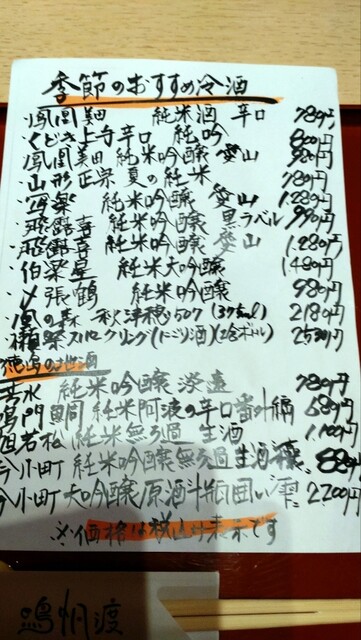 季節のおすすめ冷酒
・鳳凰美田 純米酒 辛口 789円
・くどき上手辛口 純吟 880円
・鳳凰美田 純米吟醸 愛山 980円
・山形正宗 夏の純米 789円
・写楽 純米吟醸 愛山 1,280円
・飛露喜 純米吟醸 黒ラベル 990円
・飛露喜 純米吟醸 愛山 1,280円
・伯楽星 純米大吟醸 1,480円
・〆張鶴 純米吟醸 980円
・風の森 秋津穂507 2180円
・獺祭スパークリング(にごり酒)(2合ボトル) 2530円
徳島の地酒
芳水 純米吟醸 淡遠 789円
鳴門鯛 純米阿波の辛口番外編 689円
旦君松 純米無ろ過 生酒
今小町 純米吟醸無ろ過生酒 880円
今小町大吟醸原酒斗瓶囲い雫 2200円
※価格は税込み表示です
鳴帆渡